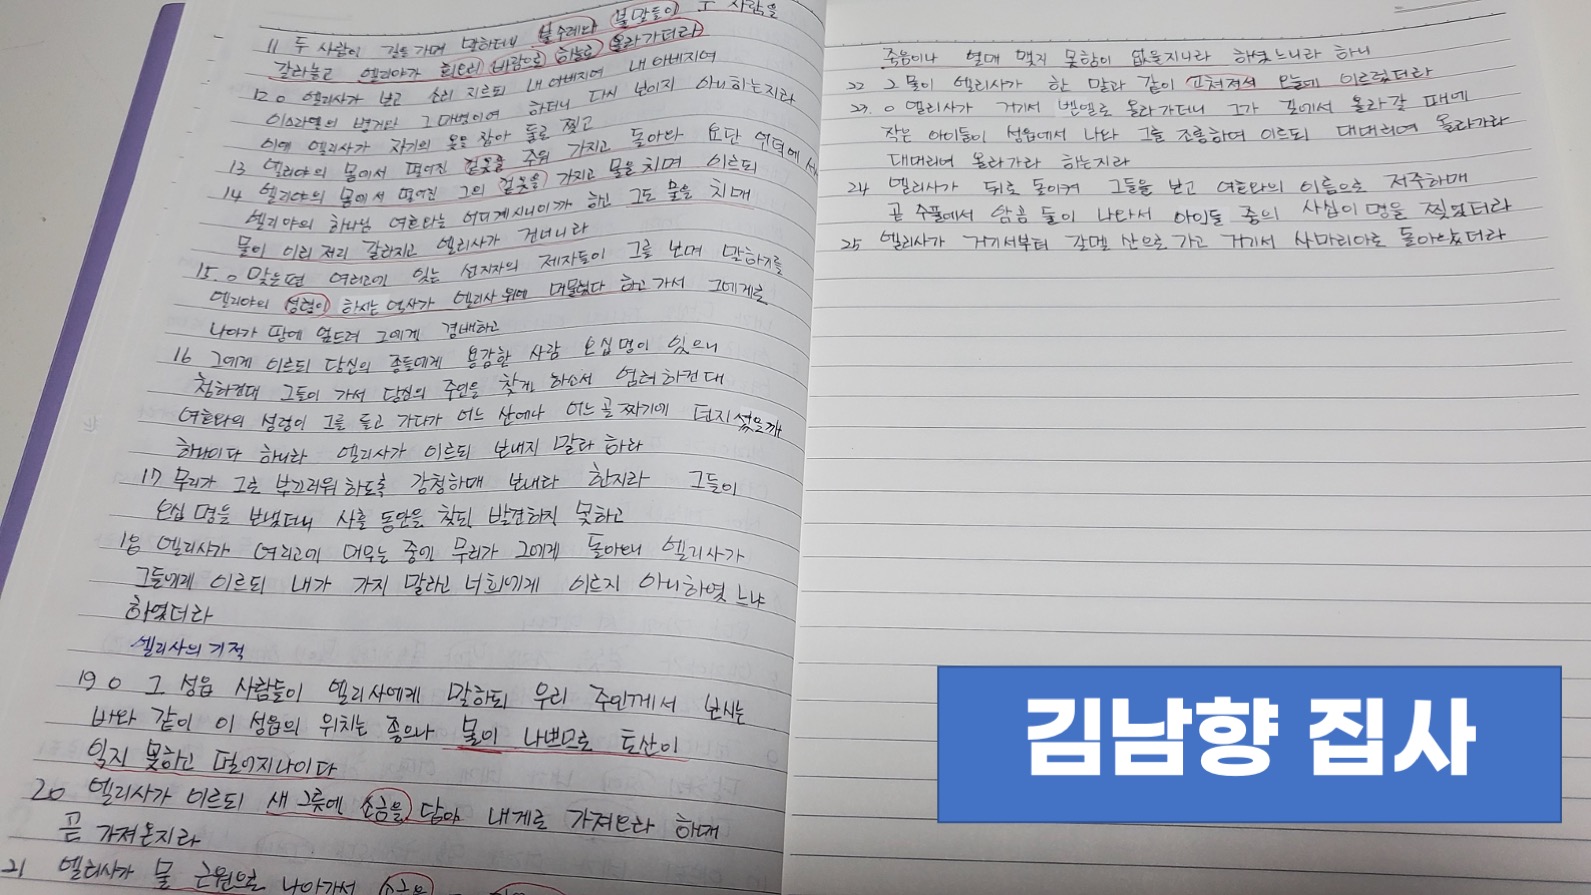 불말들이 두 사람을
11 두 사람이 길을 가며 말하더니 불수레와
갈라놓고 엘리야가 회오리 바람으로 하늘로 올라가더라
12 o 엘리사가 보고 소리 지르되 내 아버지여 내 아버지여
이스라엘의 병거와 그 마병이여 하더니 다시 보이지 아니하는지라
이에 엘리사가 자기의 옷을 잡아 둘로 찢고
13 엘리야의 몸에서 떨어진 겉옷을 주워 가지고 돌아와 요단 언덕에 서
14 엘리야의 몸에서 떨어진 그의 겉옷을 가지고 물을 치며 이르되
엘리야의 하나님 여호와는 어디 계시니이까 하고 그도 물을 치매
물이 이리 저리 갈라지고 엘리사가 건너니라
15. o 맞은편 여리고에 있는 선지자의 제자들이 그를 보며 말하기를
엘리야의 성령이 하시는 역사가 엘리사 위에 머물렀다 하고 가서 그에게로
나아가 땅에 엎드려 그에게 경배하고
16 그에게 이르되 당신의 종들에게 용감한 사람 오십 명이 있으니
청하건대 그들이 가서 당신의 주인을 찾게 하소서 염려하건대
여호와의 성령이 그를 들고 가다가 어느 산에나 어느 골짜기에 던지셨을까
하나이다 하니라 엘리사가 이르되 보내지 말라 하나
17 무리가 그로 부끄러워 하도록 강청하매 보내라 한지라 그들이
오십 명을 보냈더니 사흘 동안을 찾되 발견하지 못하고
18 엘리사가 여리고에 머무는 중에 무리가 그에게 돌아오니 엘리사가
그들에게 이르되 내가 가지 말라고 너희에게 이르지 아니하였느냐
하였더라
엘리사의 기적
19 o 그 성읍 사람들이 엘리사에게 말하되 우리 주인께서 보시는
바와 같이 이 성읍의 위치는 좋으나 물이 나쁘므로 토산이
익지 못하고 떨어지나이다
20 엘리사가 이르되 새 그릇에 소금을 담아 내게로 가져오라 하매
곧 가져온지라
21 엘리사가 물 근원으로 나아가서 소금을
죽음이나 열매 맺지 못함이 없을지니라 하셨느니라 하니
22 그 물이 엘리사가 한 말과 같이 고쳐져서 오늘에 이르렀더라
23. o 엘리사가 거기서 벧엘로 올라가더니 그가 길에서 올라갈 때에
작은 아이들이 성읍에서 나와 그를 조롱하여 이르되 대머리여 올라가라
대머리여 올라가라 하는지라
24 엘리사가 뒤로 돌이켜 그들을 보고 여호와의 이름으로 저주하매
곧 수풀에서 암곰 둘이 나와서 아이들 중의 사십이 명을 찢었더라
25 엘리사가 거기서부터 갈멜 산으로 가고 거기서 사마리아로 돌아왔더라
김남향 집사